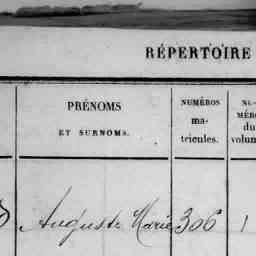 RÉPERTOIRE
PRÉNOMS
ET SURNOMS.
NUMÉROS
ma-
tricules.
NU-
MÉRO
du
volum
Auguste Marie 306 1